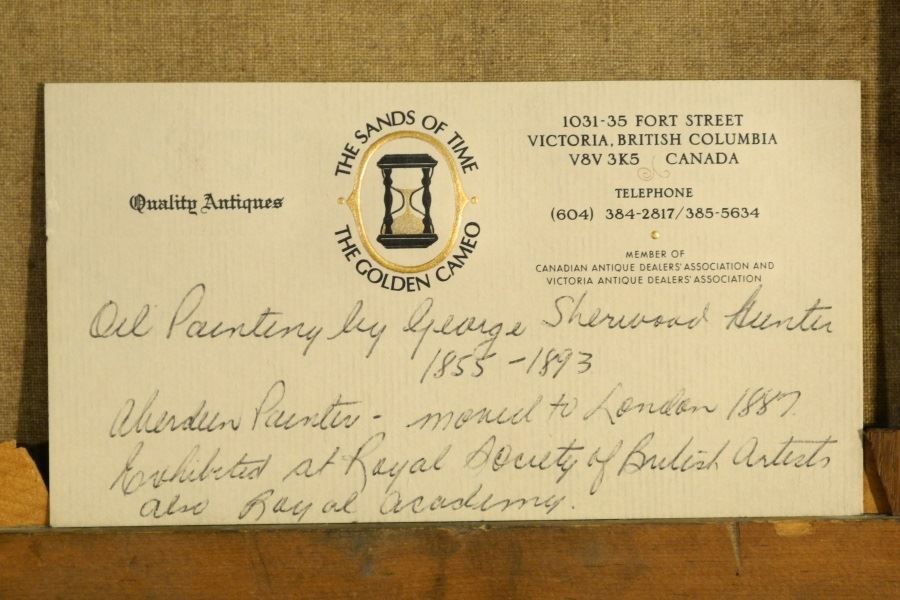 Quality Antiques
THE SANDS OF TIME
THE GOLDEN CAMEO
1031-35 FORT STREET
VICTORIA, BRITISH COLUMBIA
V8V 3K5 CANADA
TELEPHONE
(604) 384-2817/385-5634
MEMBER OF
CANADIAN ANTIQUE DEALERS' ASSOCIATION AND
VICTORIA ANTIQUE DEALERS' ASSOCIATION
Oil Painting by George Sherwood Hunter
1855-1893
Aberdeen Painter - moved to London 1887.
Exhibited at Royal Society of British Artists
also Royal Academy.